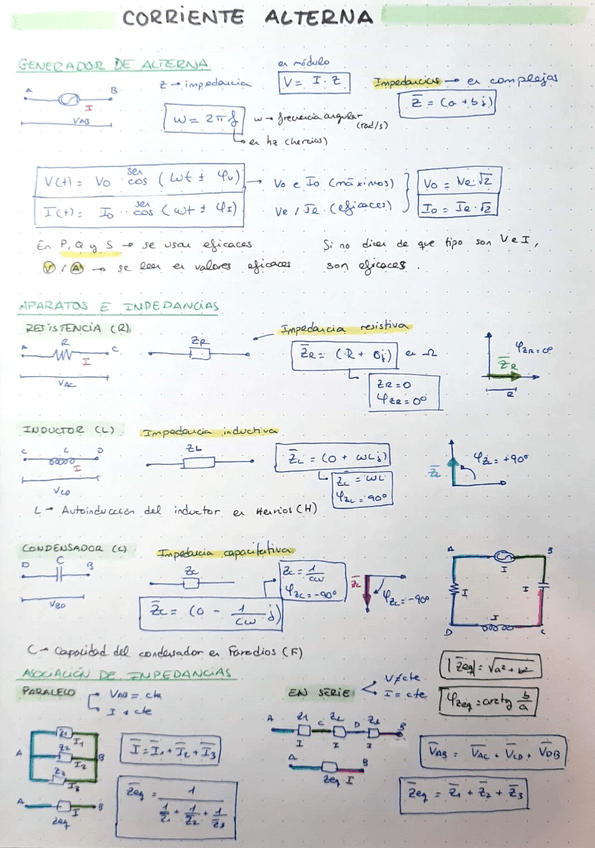 CORRIENTE ALTERNA
GENERADOR DE ALTERNA
A B
I
V_AB
Z → impedancia
en módulo
V = I · Z
Impedancias → en complejos
Z̄ = (a + bj)
ω = 2πf
ω → frecuencia angular (rad/s)
→ en hz (hercios)
V(t) = V₀ · sen cos (ωt ± φv)
I(t) = I₀ · sen cos (ωt ± φI)
→ V₀ e I₀ (máximos)
Ve / Ie (eficaces)
V₀ = Ve·√2
I₀ = Ie·√2
En P, Q y S → se usan eficaces
V / A → se leen en valores eficaces
Si no dicen de que tipo son V e I,
son eficaces.
APARATOS E IMPEDANCIAS
RESISTENCIA (R)
A R C
I
V_AC
Z_R
Impedancia resistiva
Z̄_R = (R + 0j) en Ω
Z_R = 0
φ_ZR = 0°
φ_ZR = 0°
Z̄_R
R
INDUCTOR (L)
C L D
I
V_CD
Impedancia inductiva
Z_L
Z̄_L = (0 + ωLj)
Z_L = ωL
φ_ZL = 90°
Z̄_L
φ_ZL = +90°
L → Autoinducción del inductor en Henrios (H)
CONDENSADOR (C)
D C B
V_BD
Impedancia capacitativa
Z_C
Z_C = 1/Cω
φ_ZC = -90°
Z̄_C = (0 - 1/Cω j)
Z̄_C
φ_ZC = -90°
A B
I
I I
D I C
C → Capacidad del condensador en Faradios (F)
ASOCIACIÓN DE IMPEDANCIAS
|Z̄eq| = √a² + b²
φ_Zeq = arctg b/a
PARALELO
V_AB = cte
I ≠ cte
Z₁ I₁
A Z₂ I₂ B
Z₃ I₃
Ī = Ī₁ + Ī₂ + Ī₃
A I B
Zeq
Z̄eq = 1 / (1/Z̄₁ + 1/Z̄₂ + 1/Z̄₃)
EN SERIE
V ≠ cte
I = cte
A Z₁ C Z₂ D Z₃ B
I I I
A B
Zeq I
V̄_AB = V̄_AC + V̄_CD + V̄_DB
Z̄eq = Z̄₁ + Z̄₂ + Z̄₃